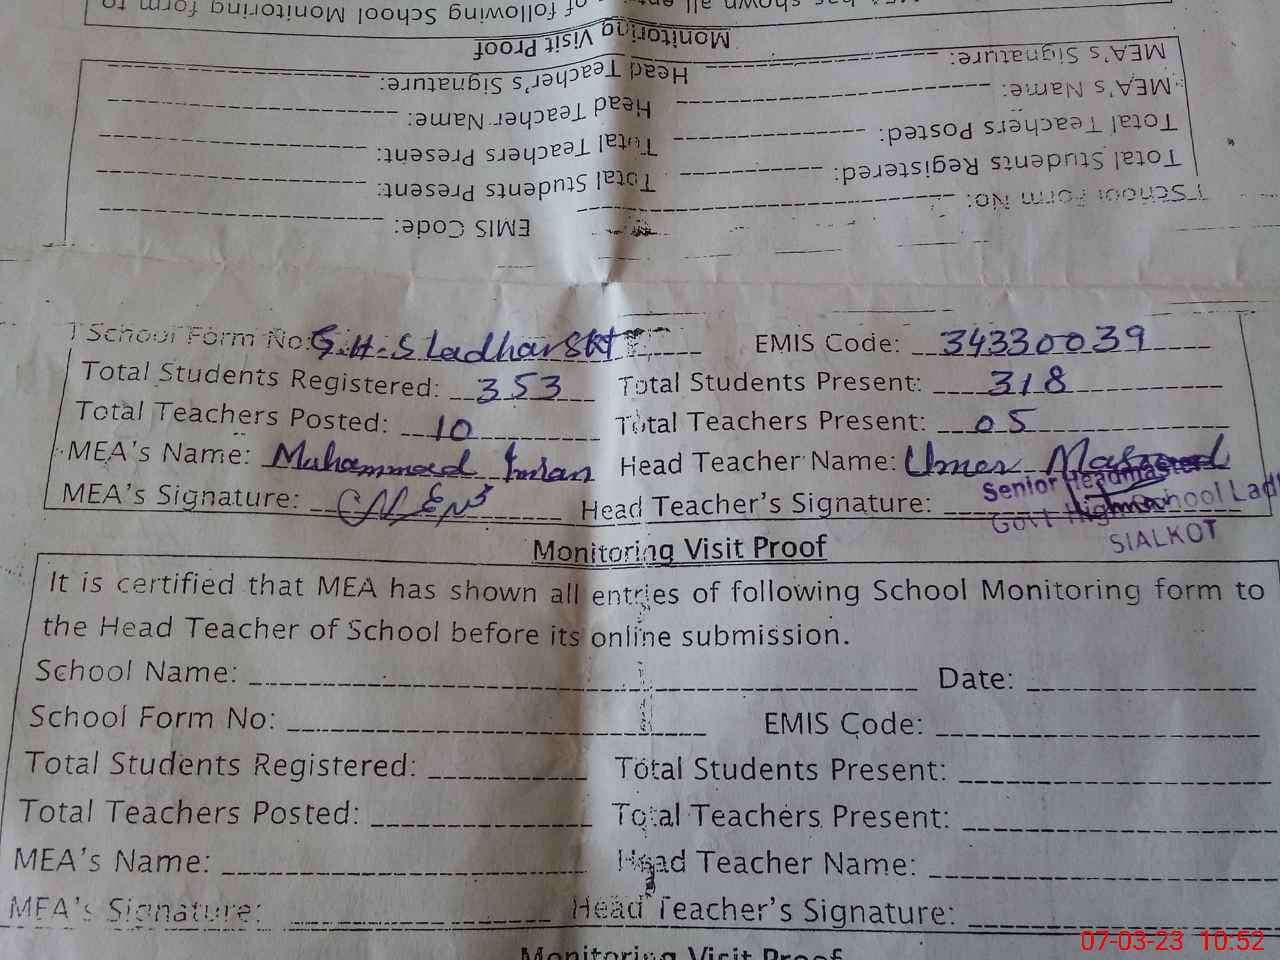 of following School Monitoring form to
Monitoring Visit Proof
MEA's Signature: Head Teacher's Signature:
MEA's Name: Head Teacher Name:
Total Teachers Posted: Total Teachers Present:
Total Students Registered: Total Students Present:
School Form No: EMIS Code:
School Form No: G.H.S Ladhar Skt EMIS Code: 34330039
Total Students Registered: 353 Total Students Present: 318
Total Teachers Posted: 10 Total Teachers Present: 05
MEA's Name: Muhammad Imran Head Teacher Name: Umer
MEA's Signature: Head Teacher's Signature:
Senior Headmaster
Govt High School Ladh
SIALKOT
Monitoring Visit Proof
It is certified that MEA has shown all entries of following School Monitoring form to
the Head Teacher of School before its online submission.
School Name: Date:
School Form No: EMIS Code:
Total Students Registered: Total Students Present:
Total Teachers Posted: Total Teachers Present:
MEA's Name: Head Teacher Name:
MEA's Signature: Head Teacher's Signature:
Monitoring Visit Proof
07-03-23 10:52